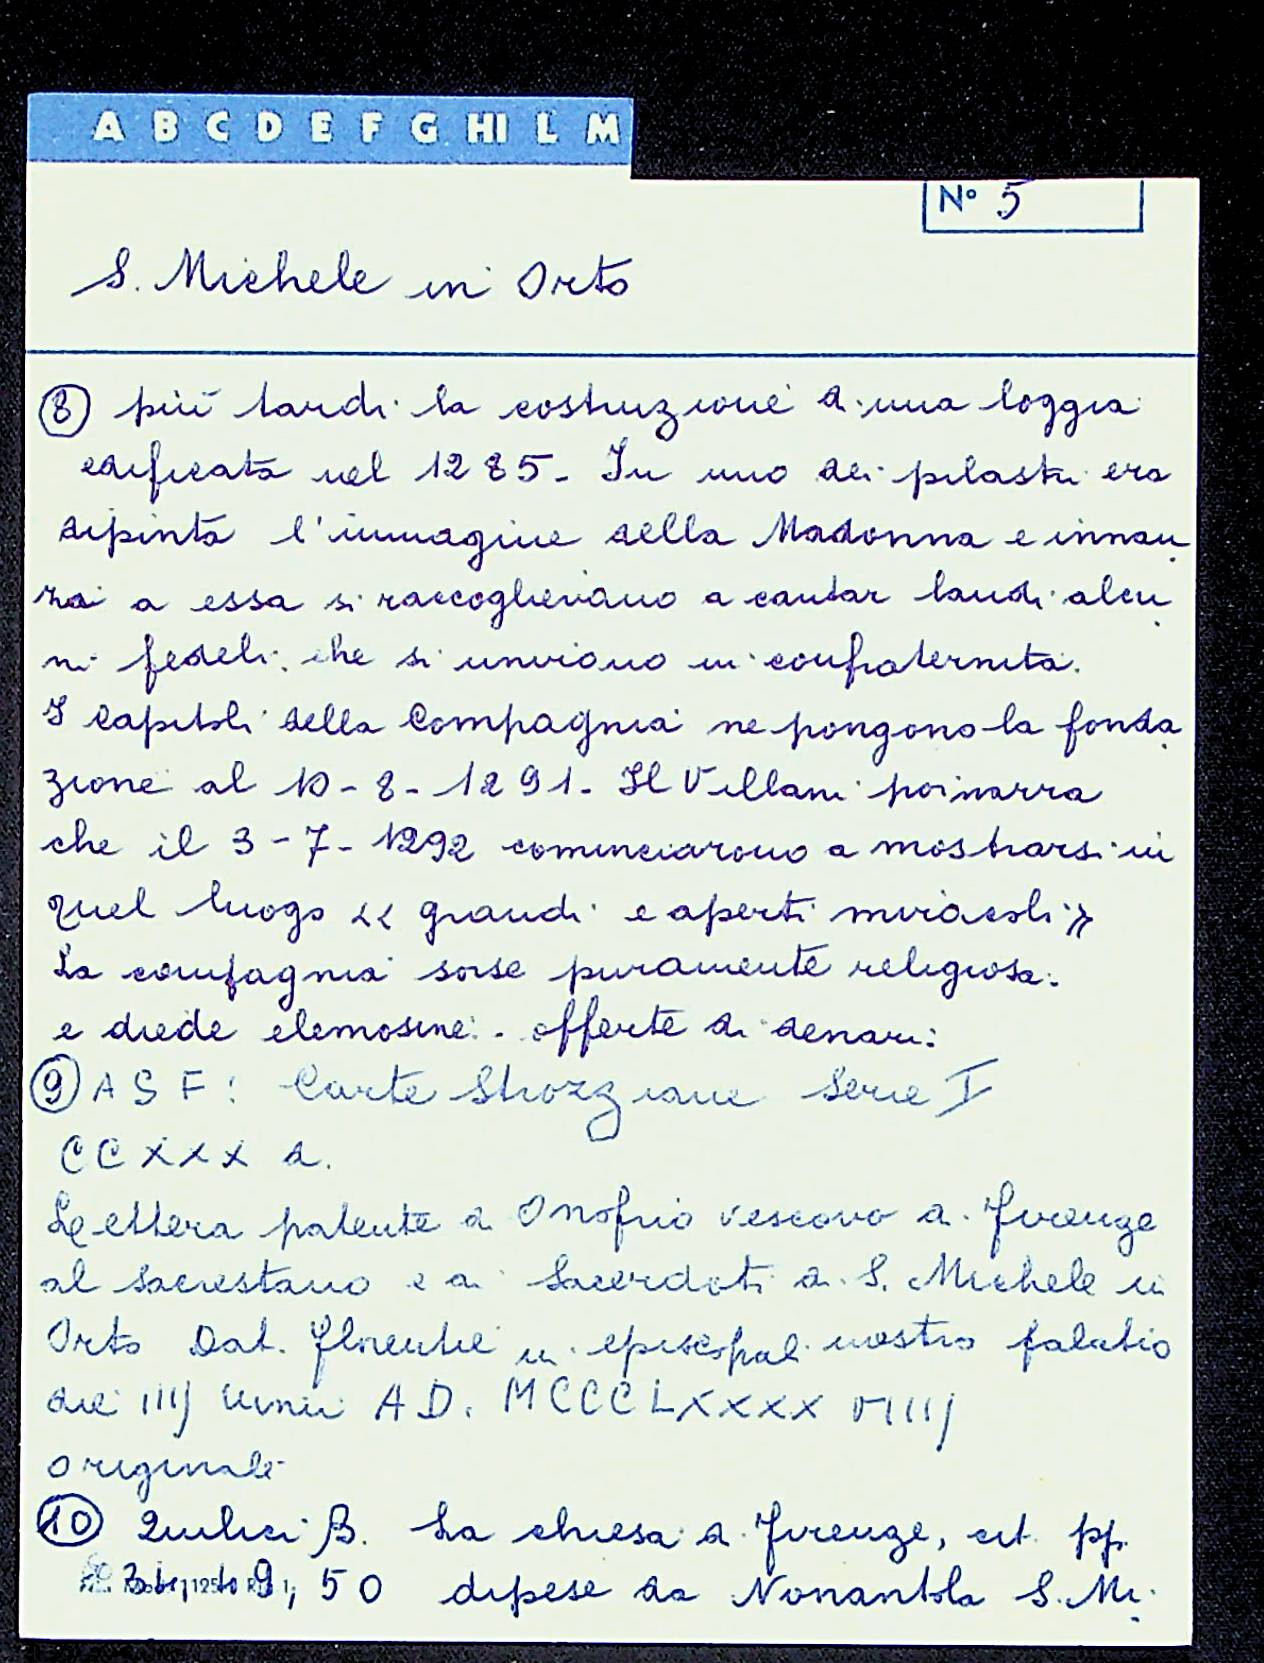 A B C D E F G HI L M
N° 5
S. Michele in Orto
⑧ più tardi la costruzione di una loggia
edificata nel 1285. In uno dei pilastri era
dipinta l'immagine della Madonna e innan
zi a essa si raccoglievano a cantar laudi alcu
ni fedeli che si univano in confraternita.
I Capitoli della Compagnia ne pongono la fonda
zione al 10-8-1291. Il Villani poi narra
che il 3-7-1292 cominciarono a mostrarsi in
quel luogo << grandi e aperti miracoli >>
La compagnia sorse puramente religiosa
e diede elemosine offerte di denari:
⑨ ASF: Carte Strozziane Serie I
CCXXX a.
Lettera patente di Onofrio vescovo di Firenze
al sacrestano e ai Sacerdoti di S. Michele in
Orto Dat. Florentie in episcopal nostro palatio
die IIIJ Iunii AD. MCCCLXXXX VIIIJ
originale
⑩ Quilici B. La chiesa di Firenze, cit. pp.
50 dipese da Nonantola S. Mi